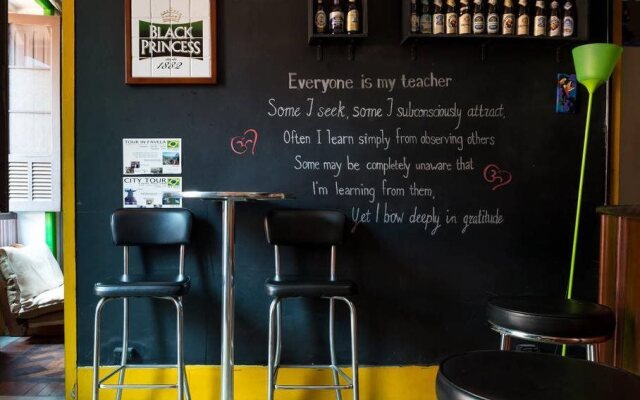 BLACK
PRINCESS
desde
1882
Everyone is my teacher
Some I seek, some I subconsciously attract,
Often I learn simply from observing others
Some may be completely unaware that
I'm learning from them,
Yet I bow deeply in gratitude
TOUR IN FAVELA
CITY TOUR